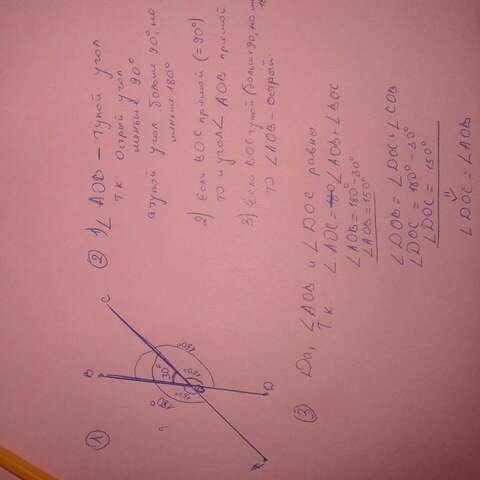 ①
B
C
180°
30°
150°
150°
180°
O
A
D
② 1) ∠ AOB – тупой угол
т.к острый угол
меньше 90°
а тупой угол больше 90°, но
меньше 180°
2) Если BOC прямой (=90°)
то и угол ∠ AOB прямой
3) Если BOC тупой (больше 90, но
то ∠ AOB – острый.
③ Да, ∠ AOB и ∠ DOC равны
т.к ∠ AOC = 180 ∠ AOB + ∠ BOC
∠ AOB = 180° - 30°
∠ AOB = 150°
∠ DOB = ∠ DOC + ∠ COB
∠ DOC = 180° - 30°
∠ DOC = 150°
∠ DOC = ∠ AOB